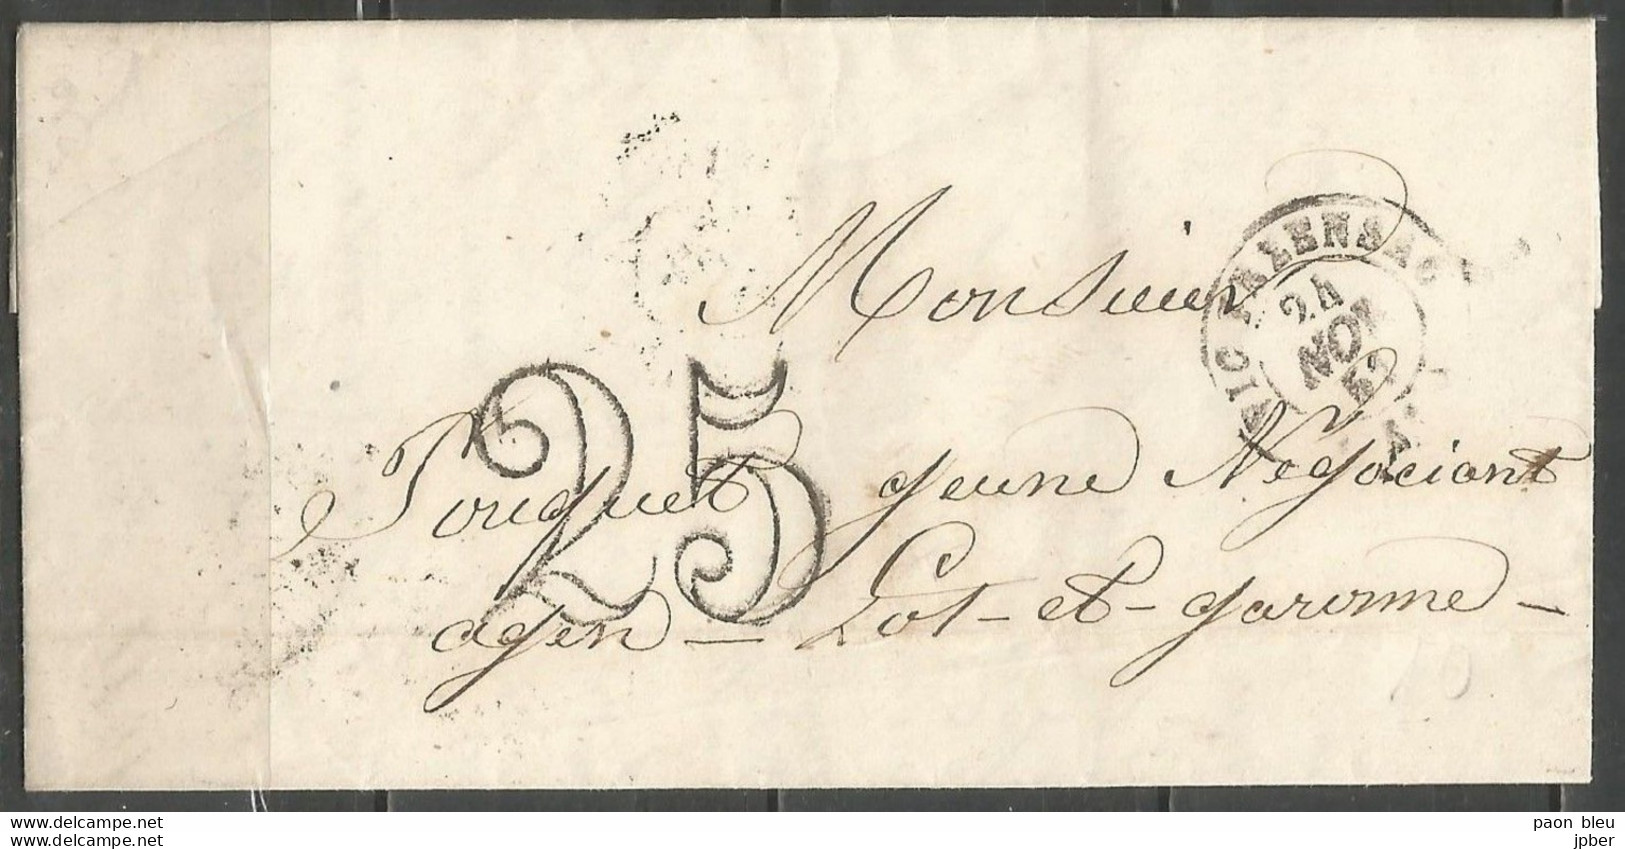 Monsieur
VIC FEZENSAC
24
NOV
52
25
Pouquet jeune Négociant
agen - Lot-et-garonne -
www.delcampe.net
www.delcampe.net
paon bleu
jpber